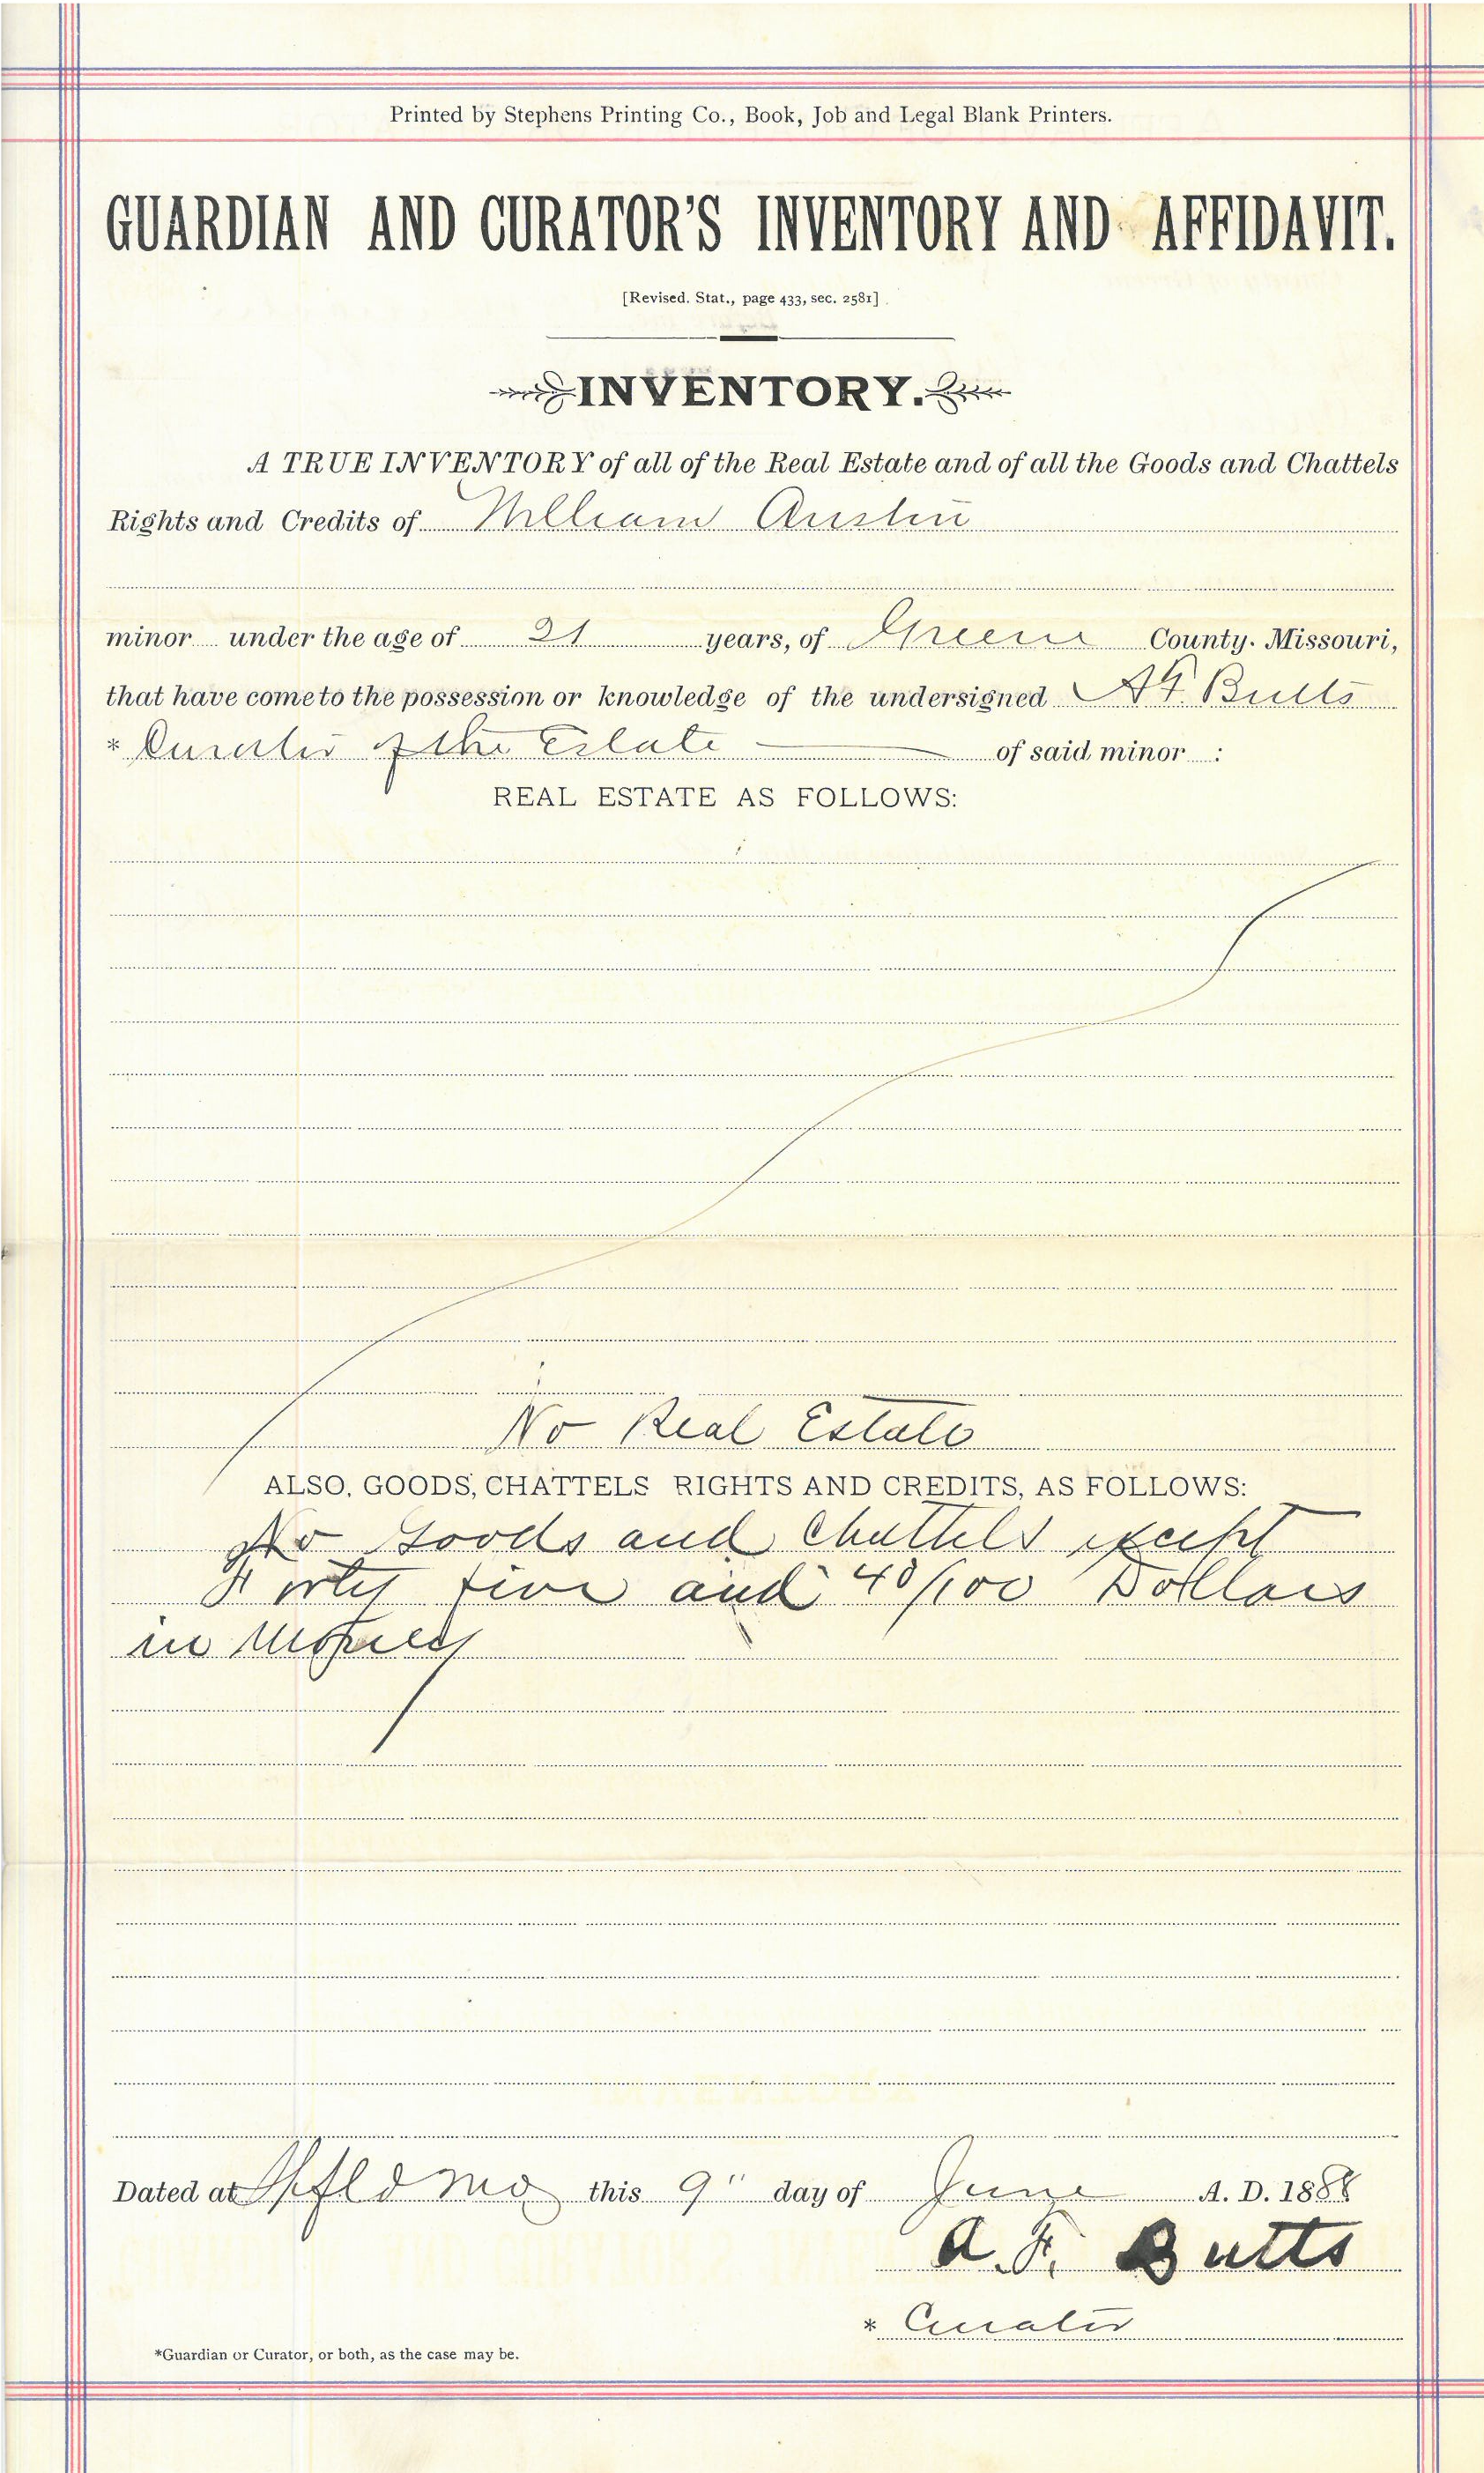 Printed by Stephens Printing Co., Book, Job and Legal Blank Printers.
GUARDIAN AND CURATOR'S INVENTORY AND AFFIDAVIT.
[Revised. Stat., page 433, sec. 2581]
INVENTORY.
A TRUE INVENTORY of all of the Real Estate and of all the Goods and Chattels
Rights and Credits of William Austin
minor under the age of 21 years, of Greene County. Missouri,
that have come to the possession or knowledge of the undersigned A F. Butts
* Curator of the Estate of said minor :
REAL ESTATE AS FOLLOWS:
No Real Estate
ALSO, GOODS, CHATTELS RIGHTS AND CREDITS, AS FOLLOWS:
No Goods and Chattels except
Forty five and 40/100 Dollars
in Money
Dated at Spfld Mo this 9" day of June A. D. 1888
A. F. Butts
* Curator
*Guardian or Curator, or both, as the case may be.